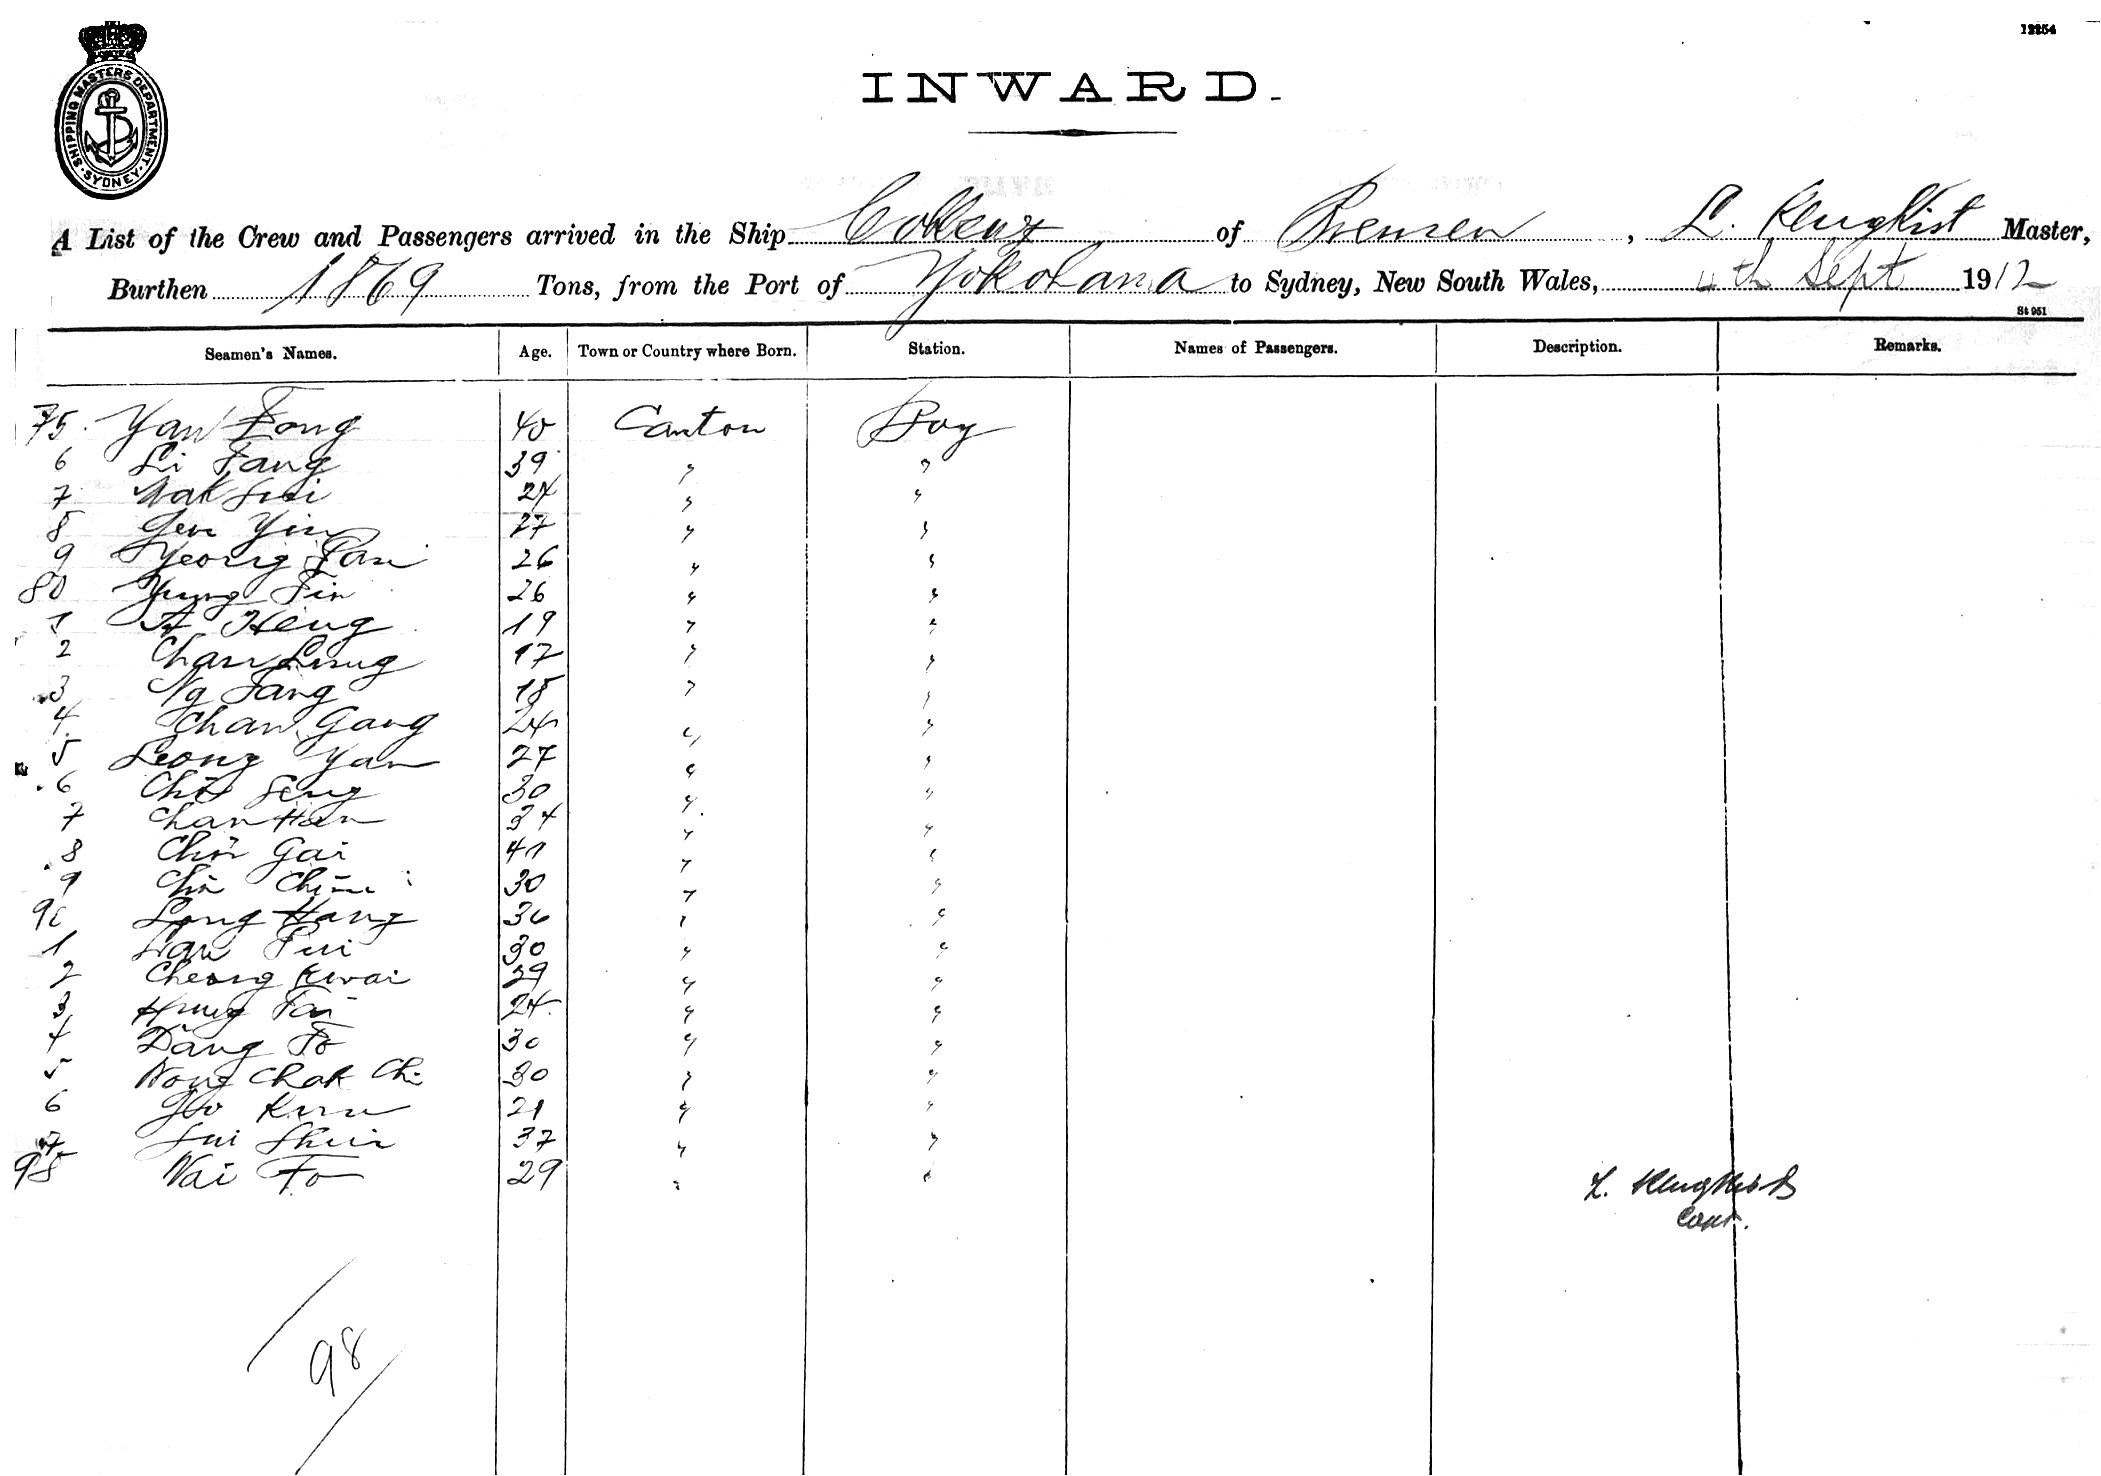 12254
SHIPPING MASTERS DEPARTMENT
SYDNEY
INWARD.
A List of the Crew and Passengers arrived in the Ship Coblenz of Bremen, L. Klugkist Master,
Burthen 1869 Tons, from the Port of Yokohama to Sydney, New South Wales, 4th Sept 1912
St 951
Seamen's Names. Age. Town or Country where Born. Station. Names of Passengers. Description. Remarks.
75. Yan Fong 40 Canton Boy
6 Li Fang 39 " "
7 Mak 24 " "
8 Yin 27 " "
9 Yeong 26 " "
80 Yung 26 " "
1 A Heng 19 " "
2 Chan Lung 17 " "
3 Ng Fang 18 " "
4 Chan Gang 24 " "
5 Leong Yan 27 " "
6 Seng 30 " "
7 Chan Han 34 " "
8 Gai 41 " "
9 30 " "
90 Long Hang 36 " "
1 30 " "
2 Cheong Kwai 29 " "
3 Hung 24 " "
4 Dang Fo 30 " "
5 Wong Chak Chi 30 " "
6 21 " "
7 Sui 37 " "
98 Wai Fo 29 " "
L. Klugkist
Capt.
98